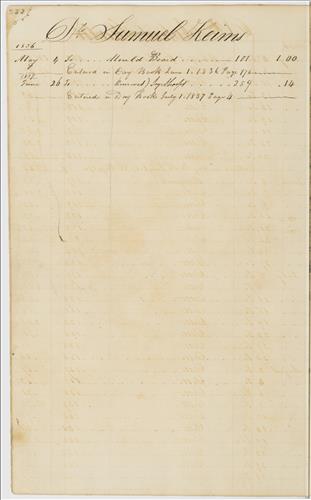 Dr. Samuel Keims
1836
May 4 To .... Mould Board .... 181 1.00
Entered in Day Book June 1. 1836 Page 176
1837
June 26 To .... .... 259 .14
Entered in Day Book July 1. 1837 Page 4